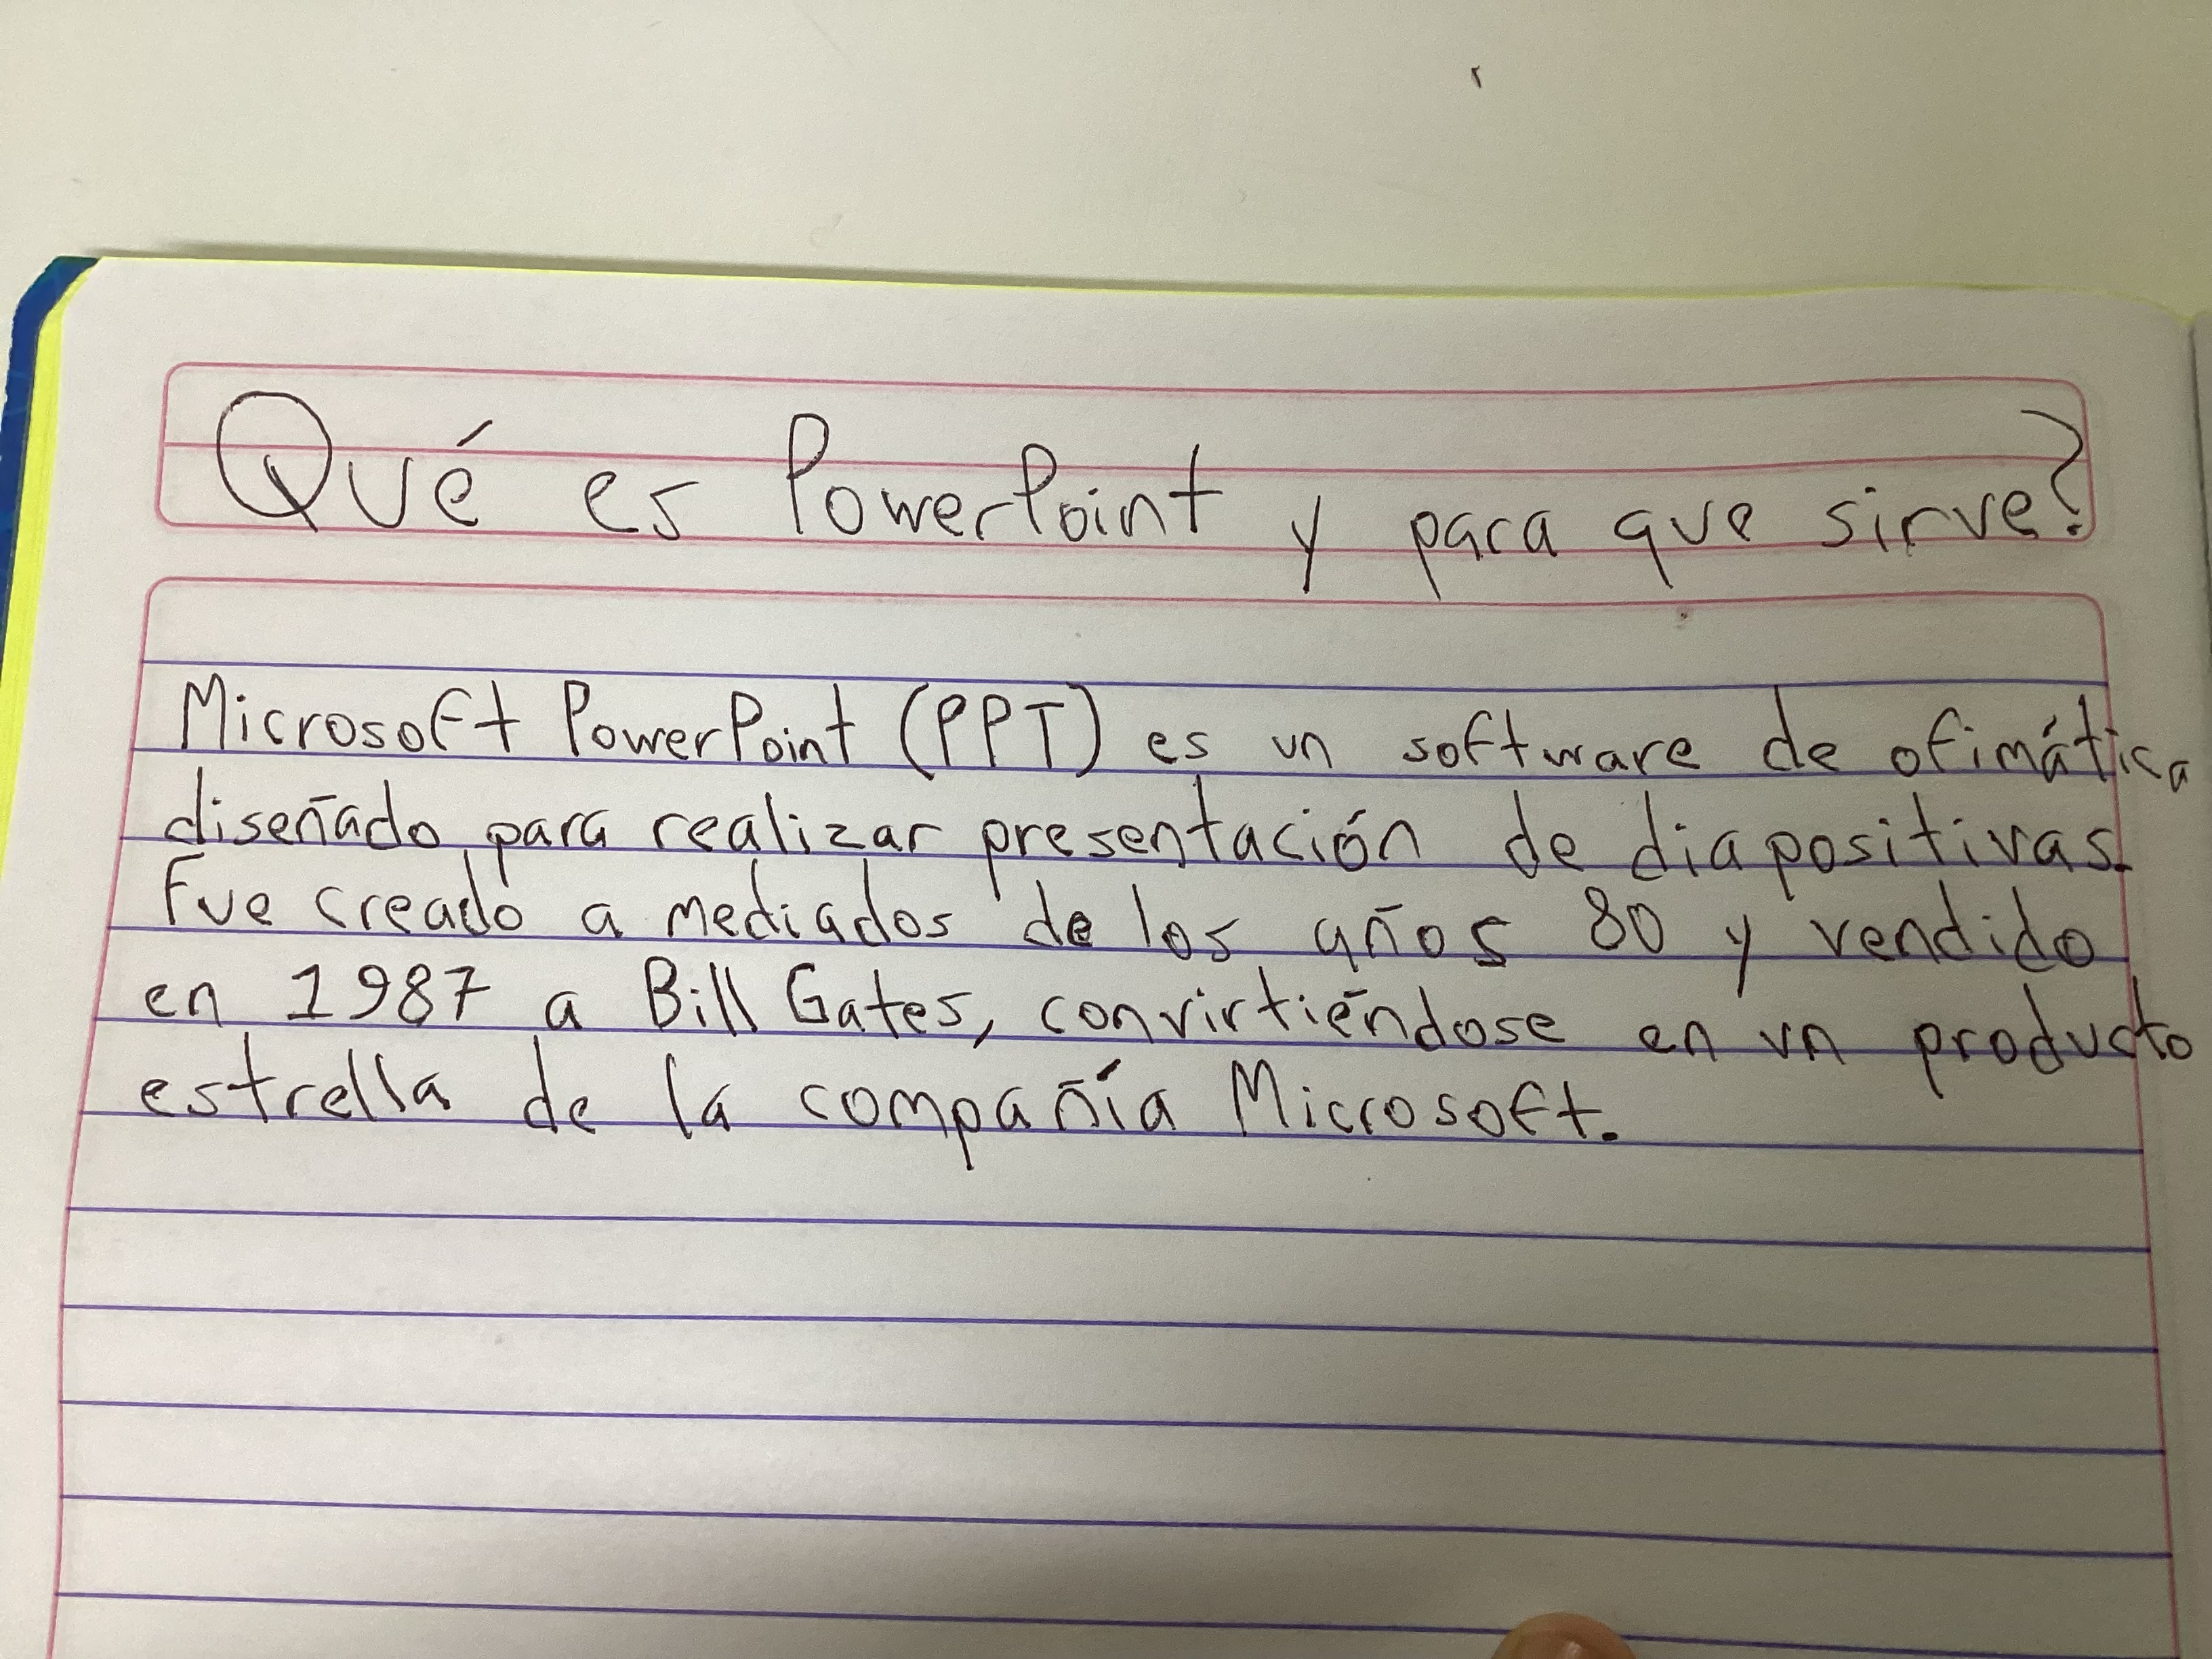 Qué es PowerPoint y para que sirve?
Microsoft PowerPoint (PPT) es un software de ofimática
diseñado para realizar presentación de diapositivas.
Fue creado a mediados de los años 80 y vendido
en 1987 a Bill Gates, convirtiéndose en un producto
estrella de la compañía Microsoft.